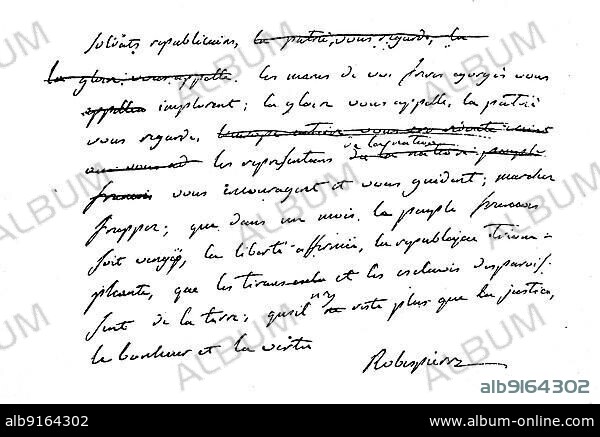 Soldats republicains, la patrie vous regarde, la
la gloire vous appelle. les manes de vos freres egorgés vous
appellent implorent; la gloire vous appelle, la patrie
vous regarde,
de la nature
les representans de la nation peuple
francais vous encouragent et vous guident; marchez
frappez; que dans un mois le peuple francais
soit vengé, la liberté affermie, la republique triom-
phante, que les tirans et les esclaves disparois-
sent de la terre; qu'il n'y reste plus que la justice,
le bonheur et la vertu
Robespierre
ALBUM
alb9164302
alb9164302
www.album-online.com